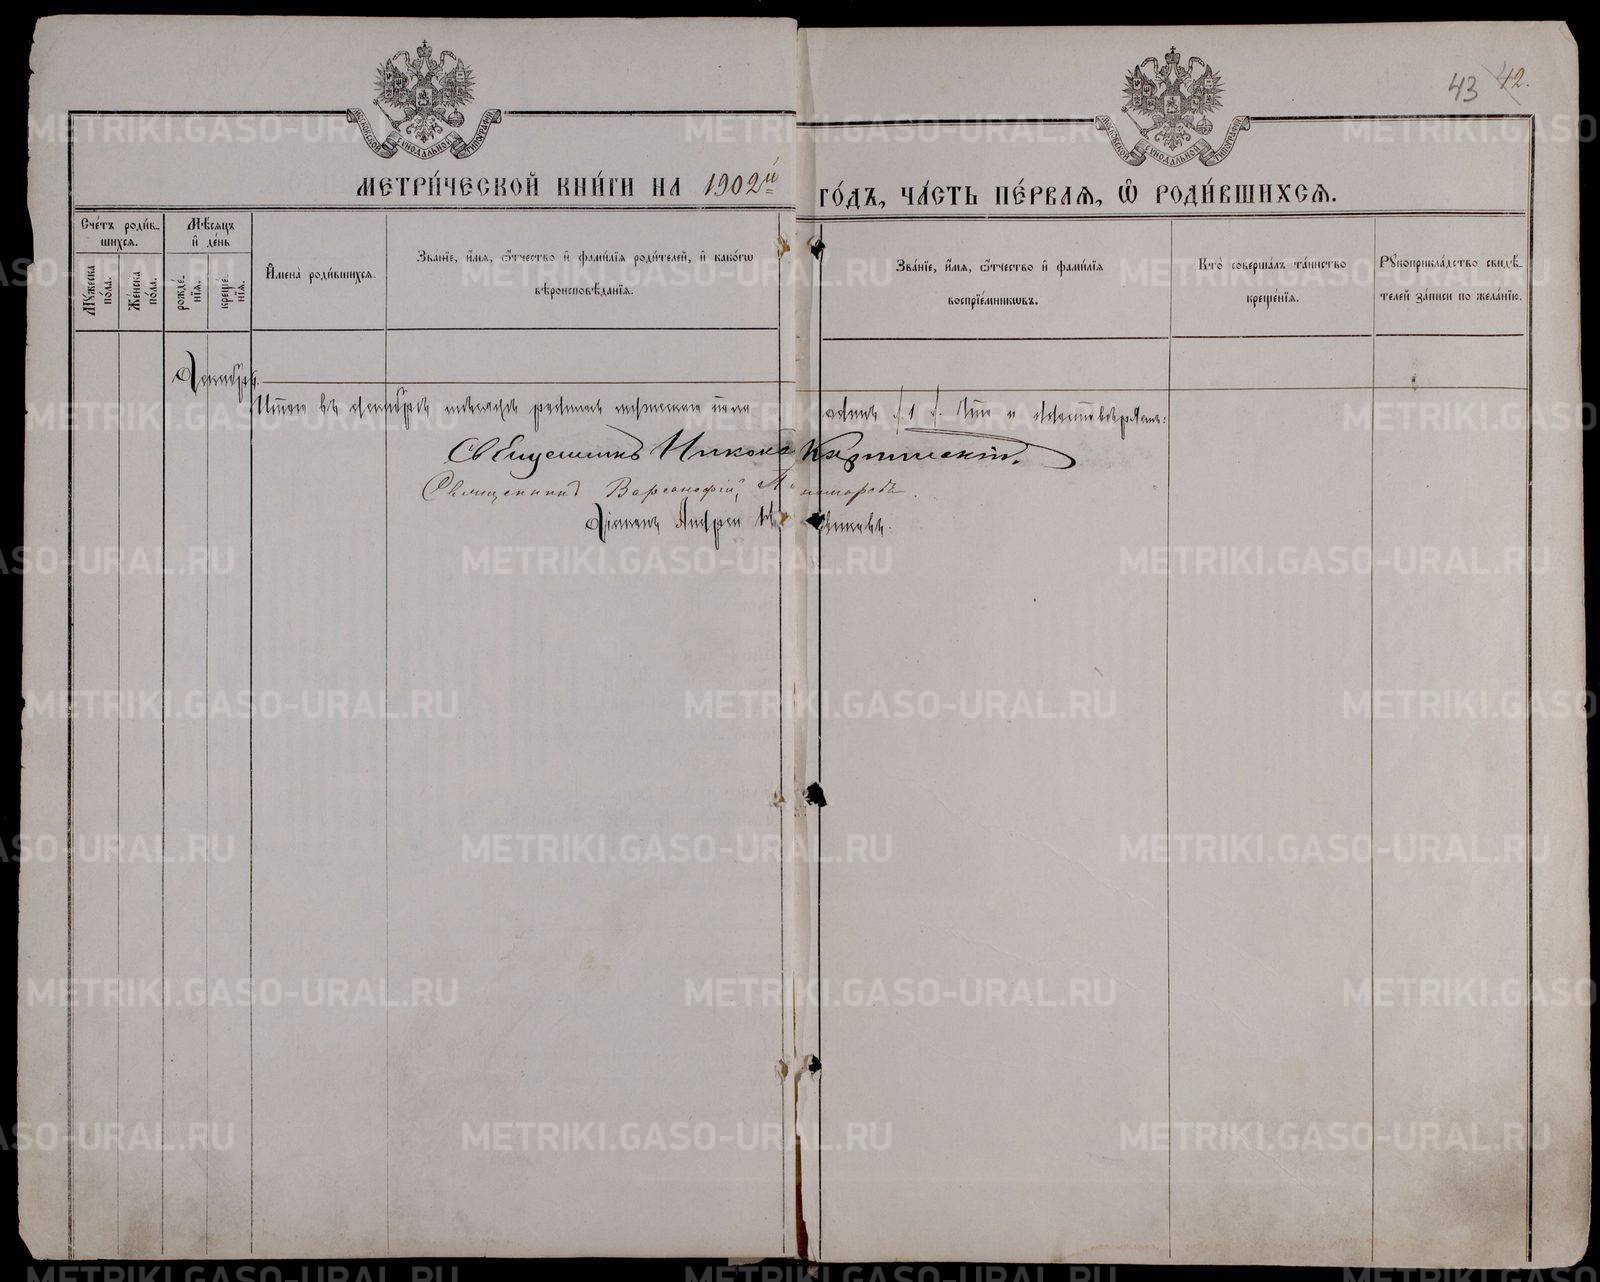 43 42.
МОСКОВСКОЙ СУНОДАЛЬНОЙ ТИПОГРАФІИ МОСКОВСКОЙ СУНОДАЛЬНОЙ ТИПОГРАФІИ
МЕТРИ́ЧЕСКОЙ КНИ́ГИ НА 1902й ГО́ДЪ, ЧА́СТЬ ПЕ́РВАѦ, Ѽ РОДИ́ВШИХСѦ.
Сче́тъ роди́в-
шихсѧ.
Мѣ́сѧцъ
и҆ де́нь
Мꙋ́жеска
по́ла.
Же́нска
по́ла.
рожде́-
нїѧ.
креще́-
нїѧ.
И҆мена̀ роди́вшихсѧ.
Зва́нїе, и҆́мѧ, ѻ҆́тчество и҆ фами́лїѧ роди́телей, и҆ како́гѡ
вѣроисповѣ́данїѧ.
Зва́нїе, и҆́мѧ, ѻ҆́тчество и҆ фами́лїѧ
воспрїе́мникѡвъ.
Кто̀ соверша́лъ та́инство
креще́нїѧ.
Рꙋкоприкла́дство свидѣ́-
телей за́писи по жела́нїю.
Декабрь.
Итого въ декабрѣ мѣсяцѣ родилось мужескаго пола одинъ (1). Что и удостовѣряемъ:
Священникъ Никола
Священникъ Варсонофій Пономаревъ.
Діаконъ Андрей
METRIKI.GASO-URAL.RU